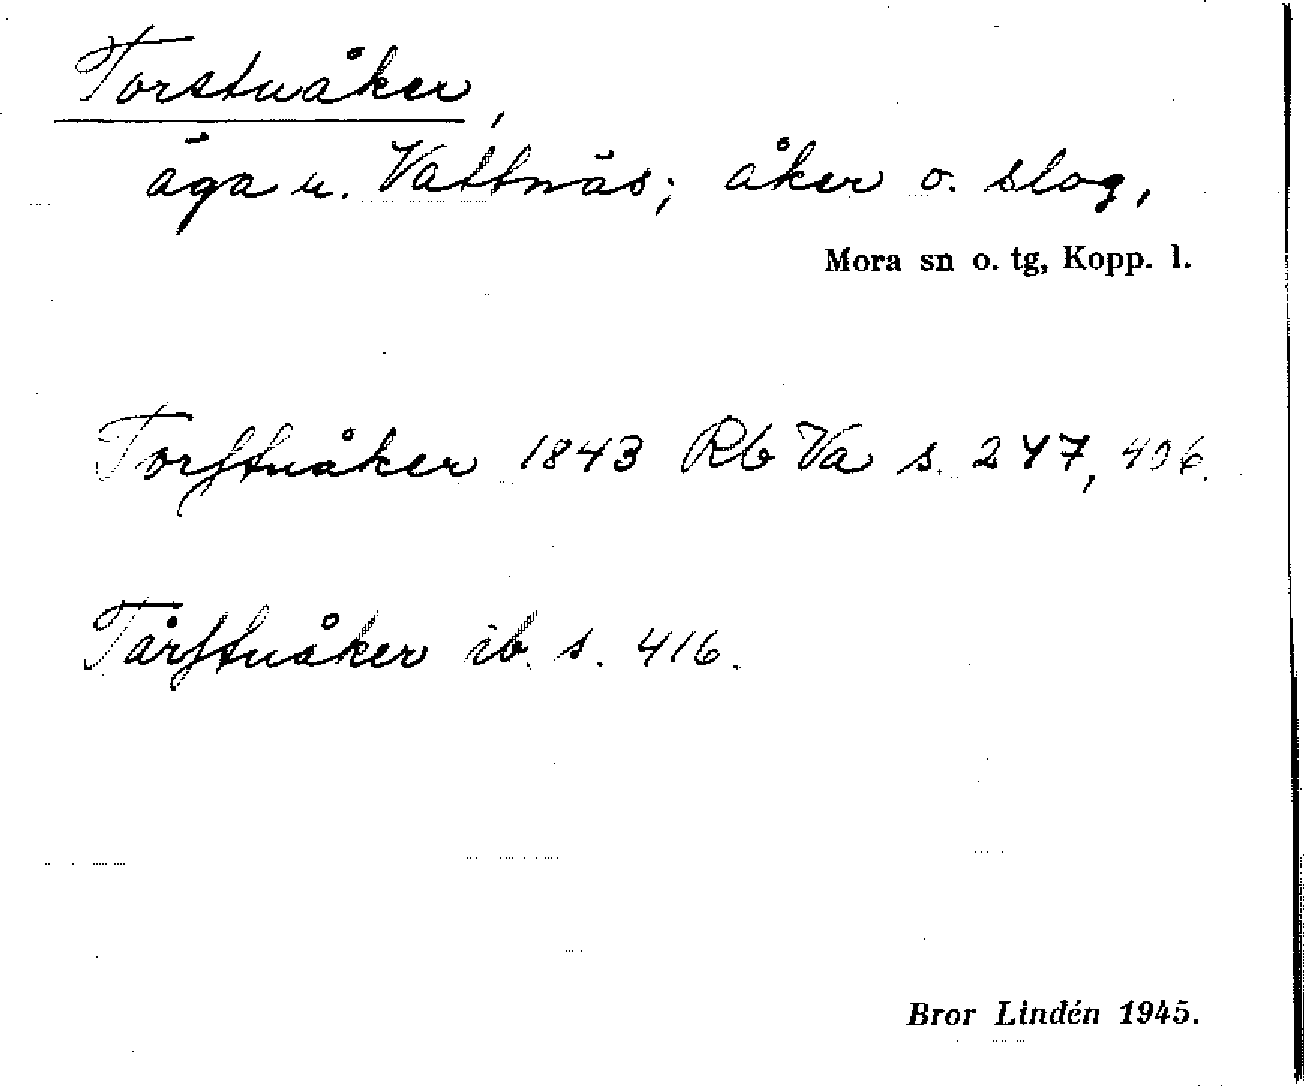 Torstnåker,
äga u. Vattnäs; åker o. slog,
Mora sn o. tg, Kopp. l.
Torstnåker 1843 Rb Va s. 247, 406.
Tårstnåker ib. s. 416.
Bror Lindén 1945.